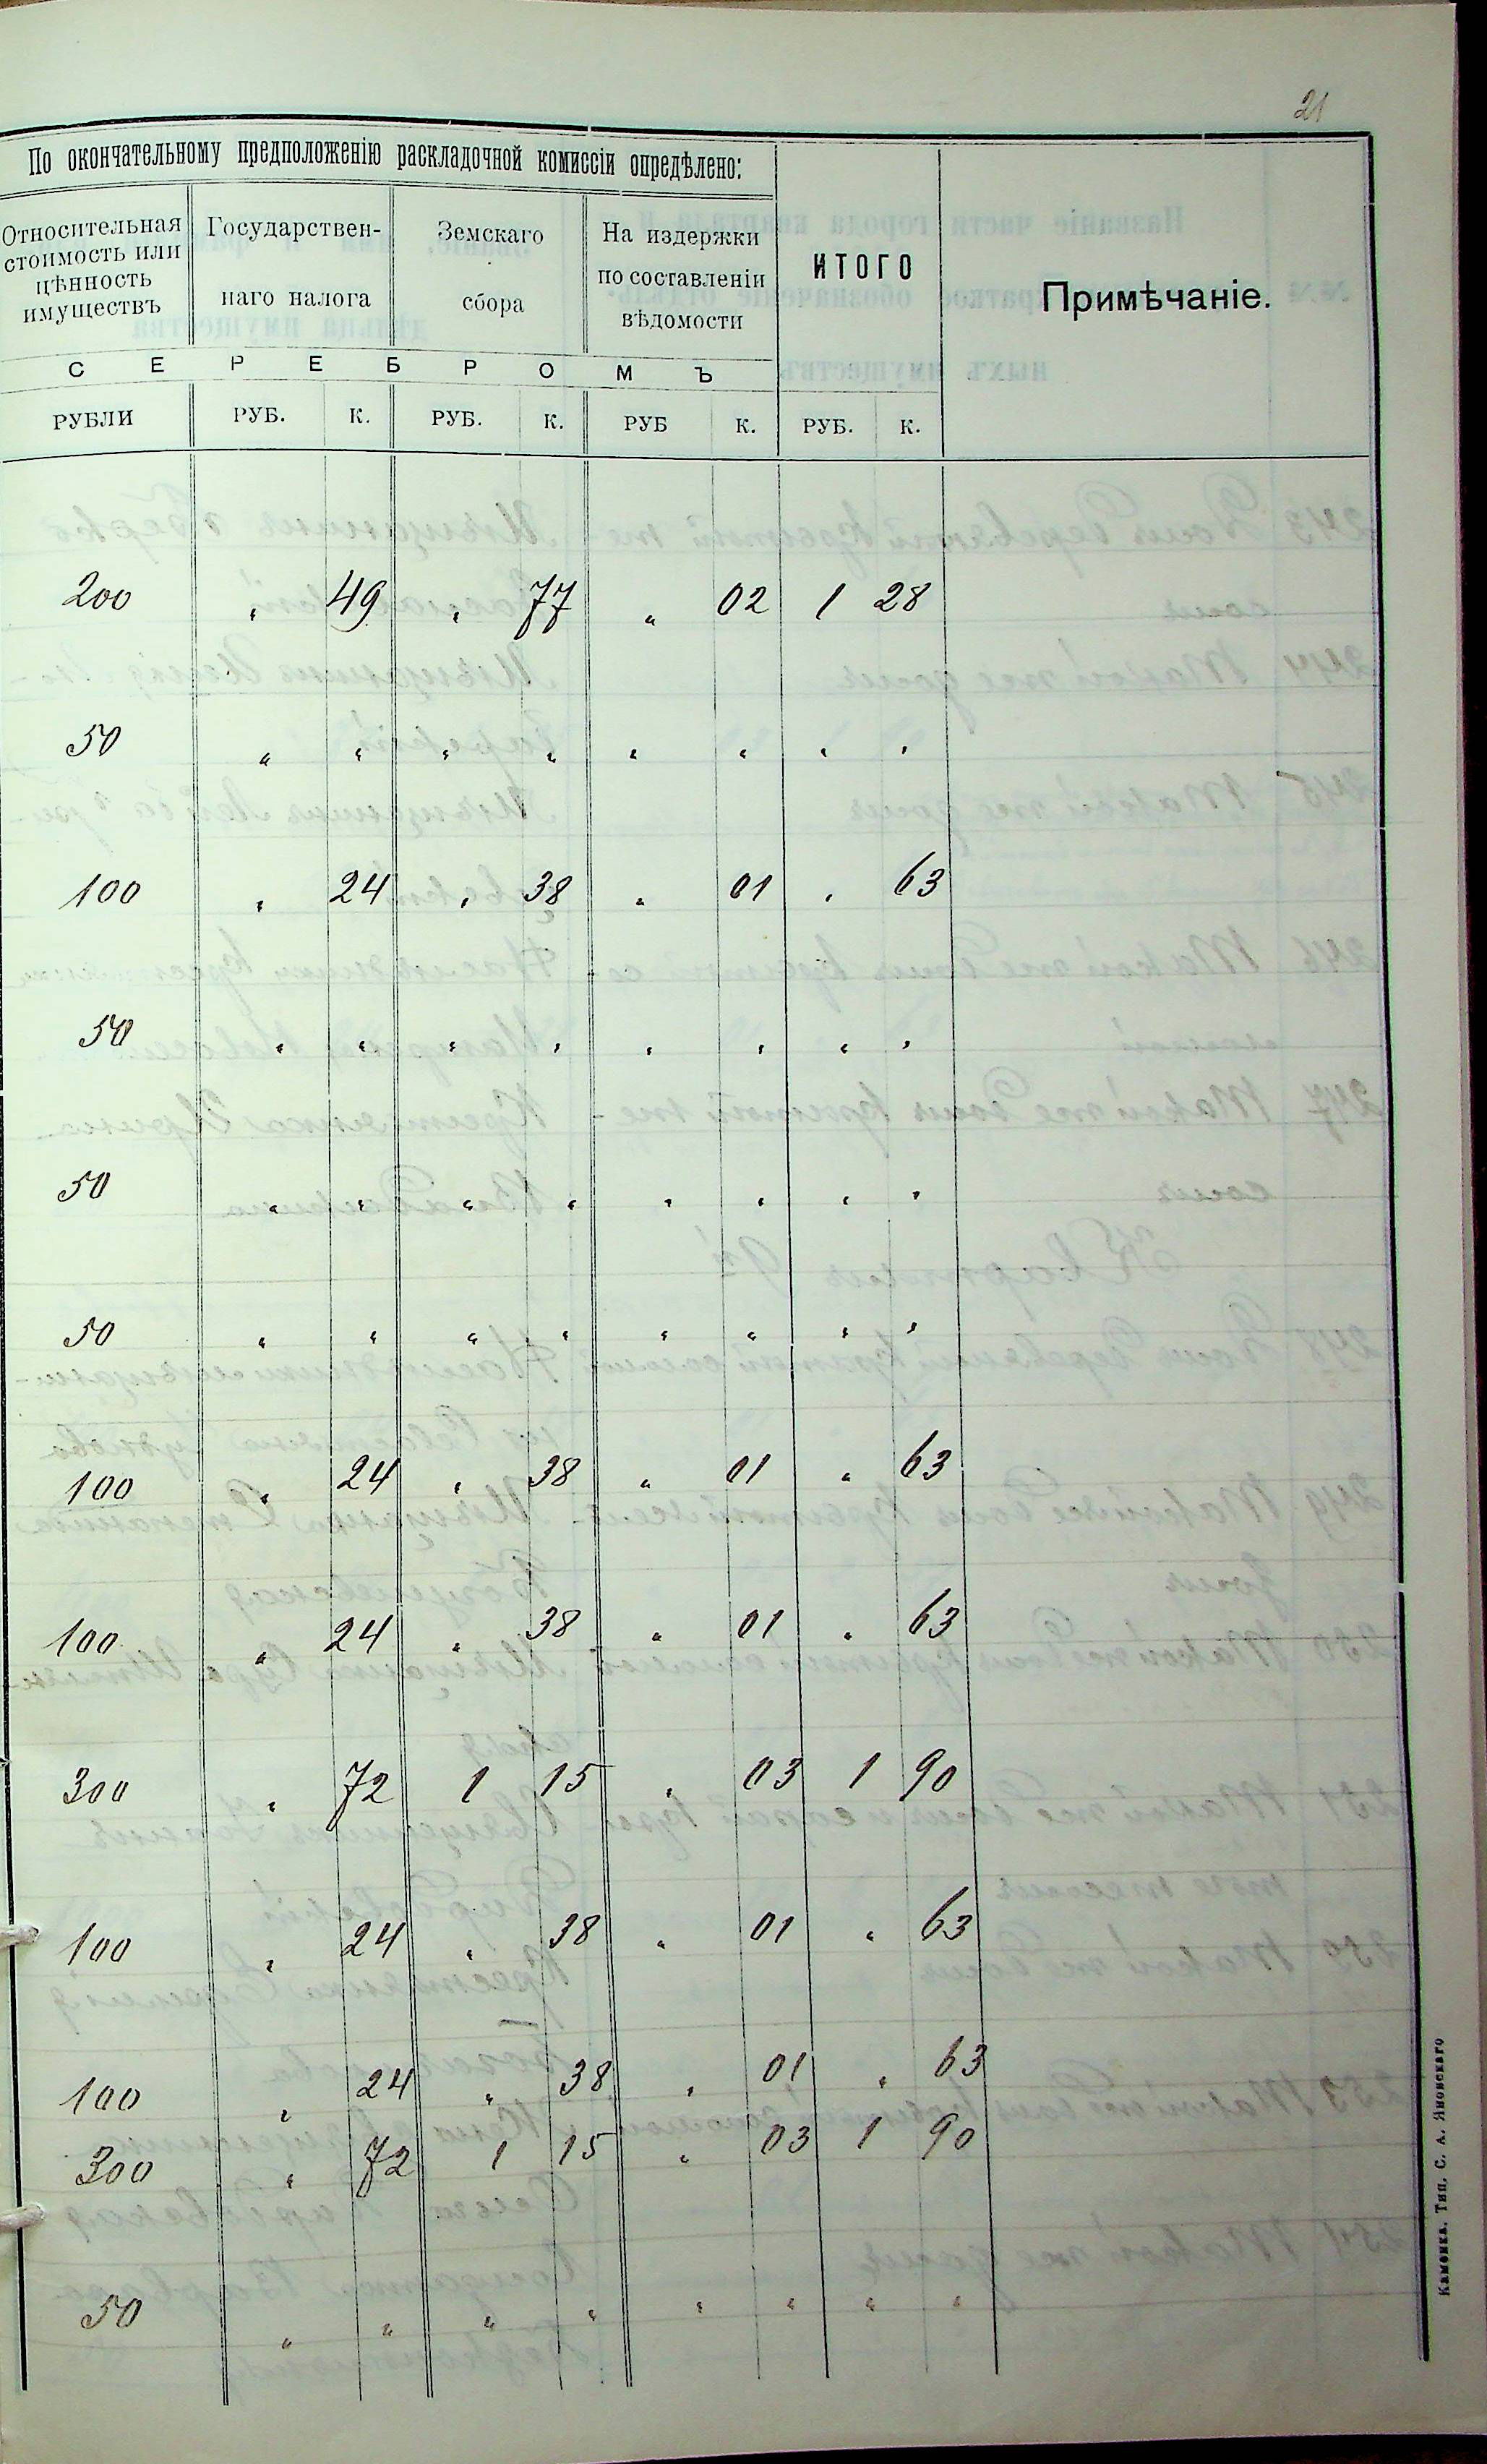 21
По окончательному предположенію раскладочной комиссіи опредѣлено:
Относительная стоимость или цѣнность имуществъ
Государственнаго налога
Земскаго сбора
На издержки по составленіи вѣдомости
ИТОГО
Примѣчаніе.
С Е Р Е Б Р О М Ъ
РУБЛИ РУБ. К. РУБ. К. РУБ К. РУБ. К.
200 „ 49 „ 77 „ 02 1 28
50 „ „ „ „ „ „ „ „
100 „ 24 „ 38 „ 01 „ 63
50 „ „ „ „ „ „ „ „
50 „ „ „ „ „ „ „ „
50 „ „ „ „ „ „ „ „
100 „ 24 „ 38 „ 01 „ 63
100 „ 24 „ 38 „ 01 „ 63
300 „ 72 1 15 „ 03 1 90
100 „ 24 „ 38 „ 01 „ 63
100 „ 24 „ 38 „ 01 „ 63
300 „ 72 1 15 „ 03 1 90
50 „ „ „ „ „ „ „ „
Каменка. Тип. С. А. Яновскаго